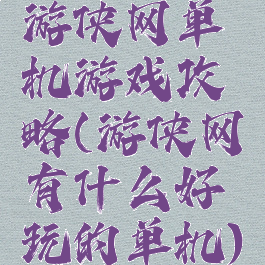 游侠网单
机游戏攻
略(游侠网
有什么好
玩的单机)